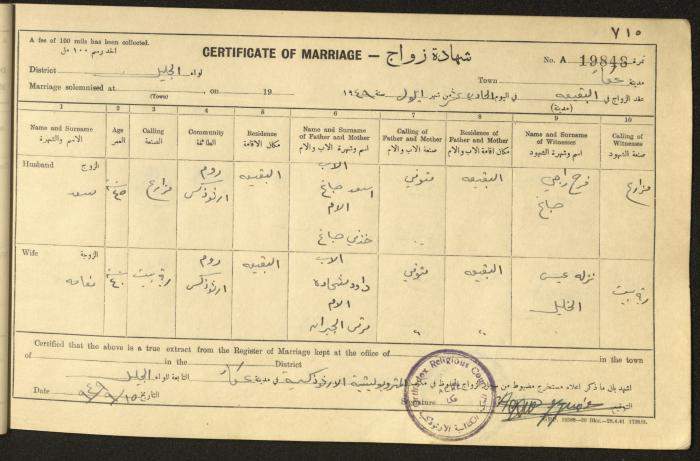 ٧١٥
A fee of 100 mils has been collected.
اخذ رسم ١٠٠ مل
CERTIFICATE OF MARRIAGE — شهادة زواج
No. A 19848 نمرة
District لواء الجليل
Town مدينة عكا
Marriage solemnised at , on 19
(Town)
عقد الزواج في البقيعه في اليوم الحادي عشر من شهر ايلول سنة ١٩٤٩
(مدينة)
1 2 3 4 5 6 7 8 9 10
Name and Surname الاسم والشهرة
Age العمر
Calling الصنعة
Community الطائفة
Residence مكان الاقامة
Name and Surname of Father and Mother اسم وشهرة الاب والام
Calling of Father and Mother صنعة الاب والام
Residence of Father and Mother مكان اقامة الاب والام
Name and Surname of Witnesses اسم وشهرة الشهود
Calling of Witnesses صنعة الشهود
Husband الزوج
سعد
مزارع
روم ارثوذكس
البقيعه
الاب
اسعد صباغ
الام
صباغ
متوفي
البقيعه
فرح راجي
صباغ
مزارع
Wife الزوجة
نعامه
ربة بيت
روم ارثوذكس
البقيعه
الاب
داود
الام
متوفي
البقيعه
نزله عيسى
الخليل
ربة بيت
Certified that the above is a true extract from the Register of Marriage kept at the office of in the town
of in the District
اشهد بان ما ذكر اعلاه مستخرج مضبوط من سجل الزواج المحفوظ في مكتب المتروبوليتية الارثوذكسية في مدينة عكا التابعة للواء الجليل
Date التاريخ
Signature التوقيع
Orthodox Religious Court
ACRE
عكا